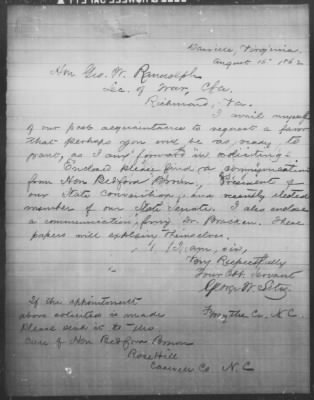 Danville, Virginia.
August 15" 1862
Hon Geo. W. Randolph
Sec. of War, C.S.A.
Richmond, Va.
I avail myself
of our past acquaintance to request a favor
that perhaps you will be as ready to
grant, as I am forward in soliciting.
Enclosed please find a communication
from Hon Bedford Brown, President of
our State convention, and recently elected
member of our State Senate. I also enclose
a communication from Dr. Bracken. These
papers will explain themselves.
I am, sir,
Very Respectfully
Your Obt. Servant
George W.
Forsythe Co. N.C.
If the appointment
above solicited is made
please send it to me
care of Hon Bedford Brown
Rose Hill
Caswell Co. N.C